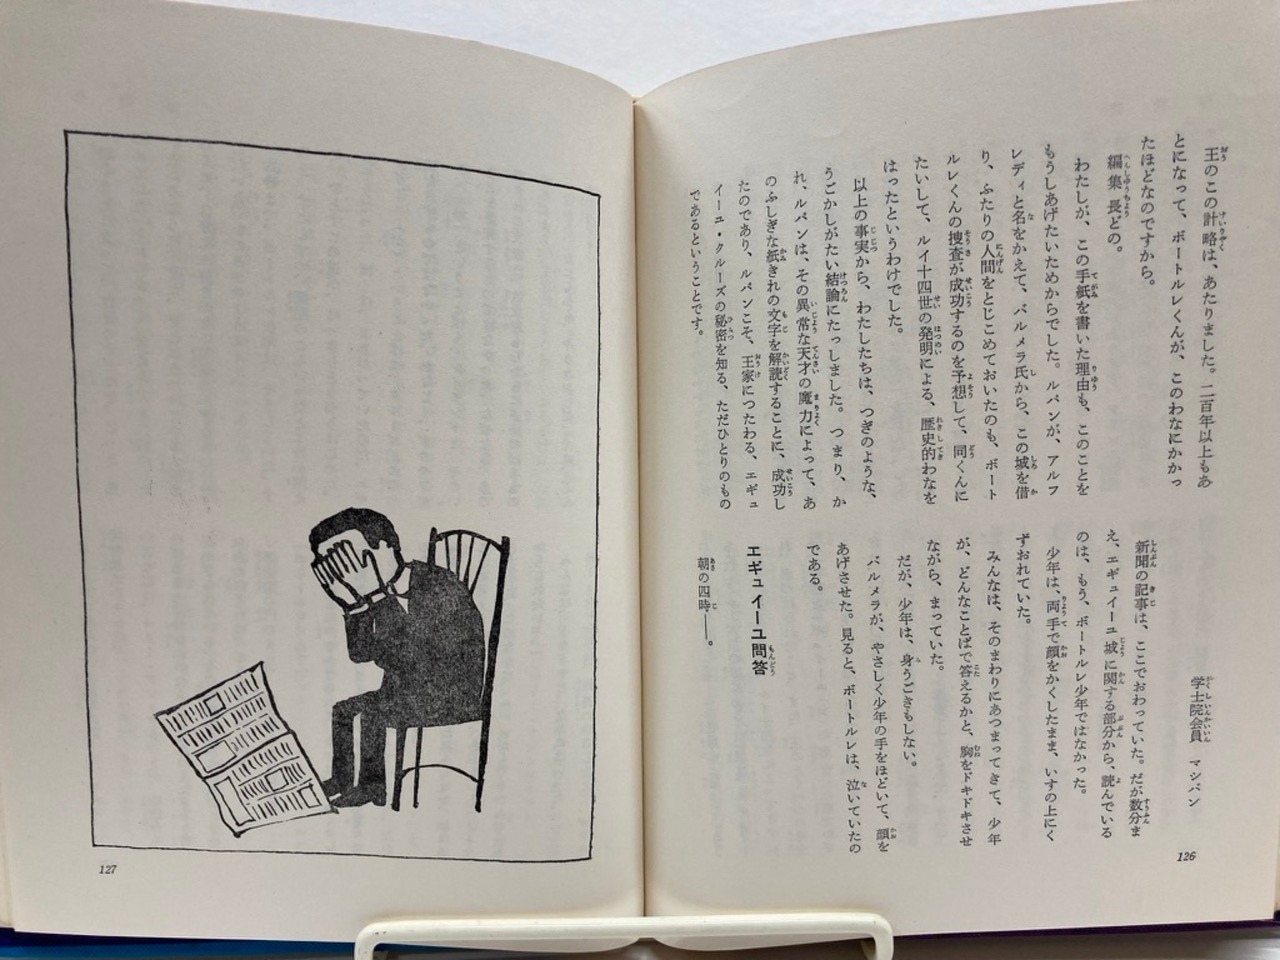 王のこの計略は、あたりました。二百年以上もあ
とになって、ボートルレくんが、このわなにかかっ
たほどなのですから。
編集長どの。
わたしが、この手紙を書いた理由も、このことを
もうしあげたいためからでした。ルパンが、アルフ
レディと名をかえて、バルメラ氏から、この城を借
り、ふたりの人間をとじこめておいたのも、ボート
ルレくんの捜査が成功するのを予想して、同くんに
たいして、ルイ十四世の発明による、歴史的わなを
はったというわけでした。
以上の事実から、わたしたちは、つぎのような、
うごかしがたい結論にたっしました。つまり、か
れ、ルパンは、その異常な天才の魔力によって、あ
のふしぎな紙きれの文字を解読することに、成功し
たのであり、ルパンこそ、王家につたわる、エギュ
イーユ・クルーズの秘密を知る、ただひとりのもの
であるということです。
学士院会員　マシバン
新聞の記事は、ここでおわっていた。だが数分ま
え、エギュイーユ城に関する部分から、読んでいる
のは、もう、ボートルレ少年ではなかった。
少年は、両手で顔をかくしたまま、いすの上にく
ずおれていた。
みんなは、そのまわりにあつまってきて、少年
が、どんなことばで答えるかと、胸をドキドキさせ
ながら、まっていた。
だが、少年は、身うごきもしない。
バルメラが、やさしく少年の手をほどいて、顔を
あげさせた。見ると、ボートルレは、泣いていたの
である。
エギュイーユ問答
朝の四時――。
126
127